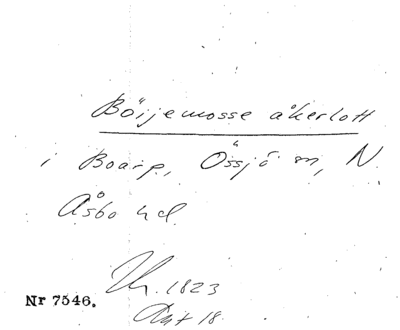 Böijemosse åkerlott
i Boarp, Össjö sn, N.
Åsbo hd.
1823
Nr 7546.
Akt 18.